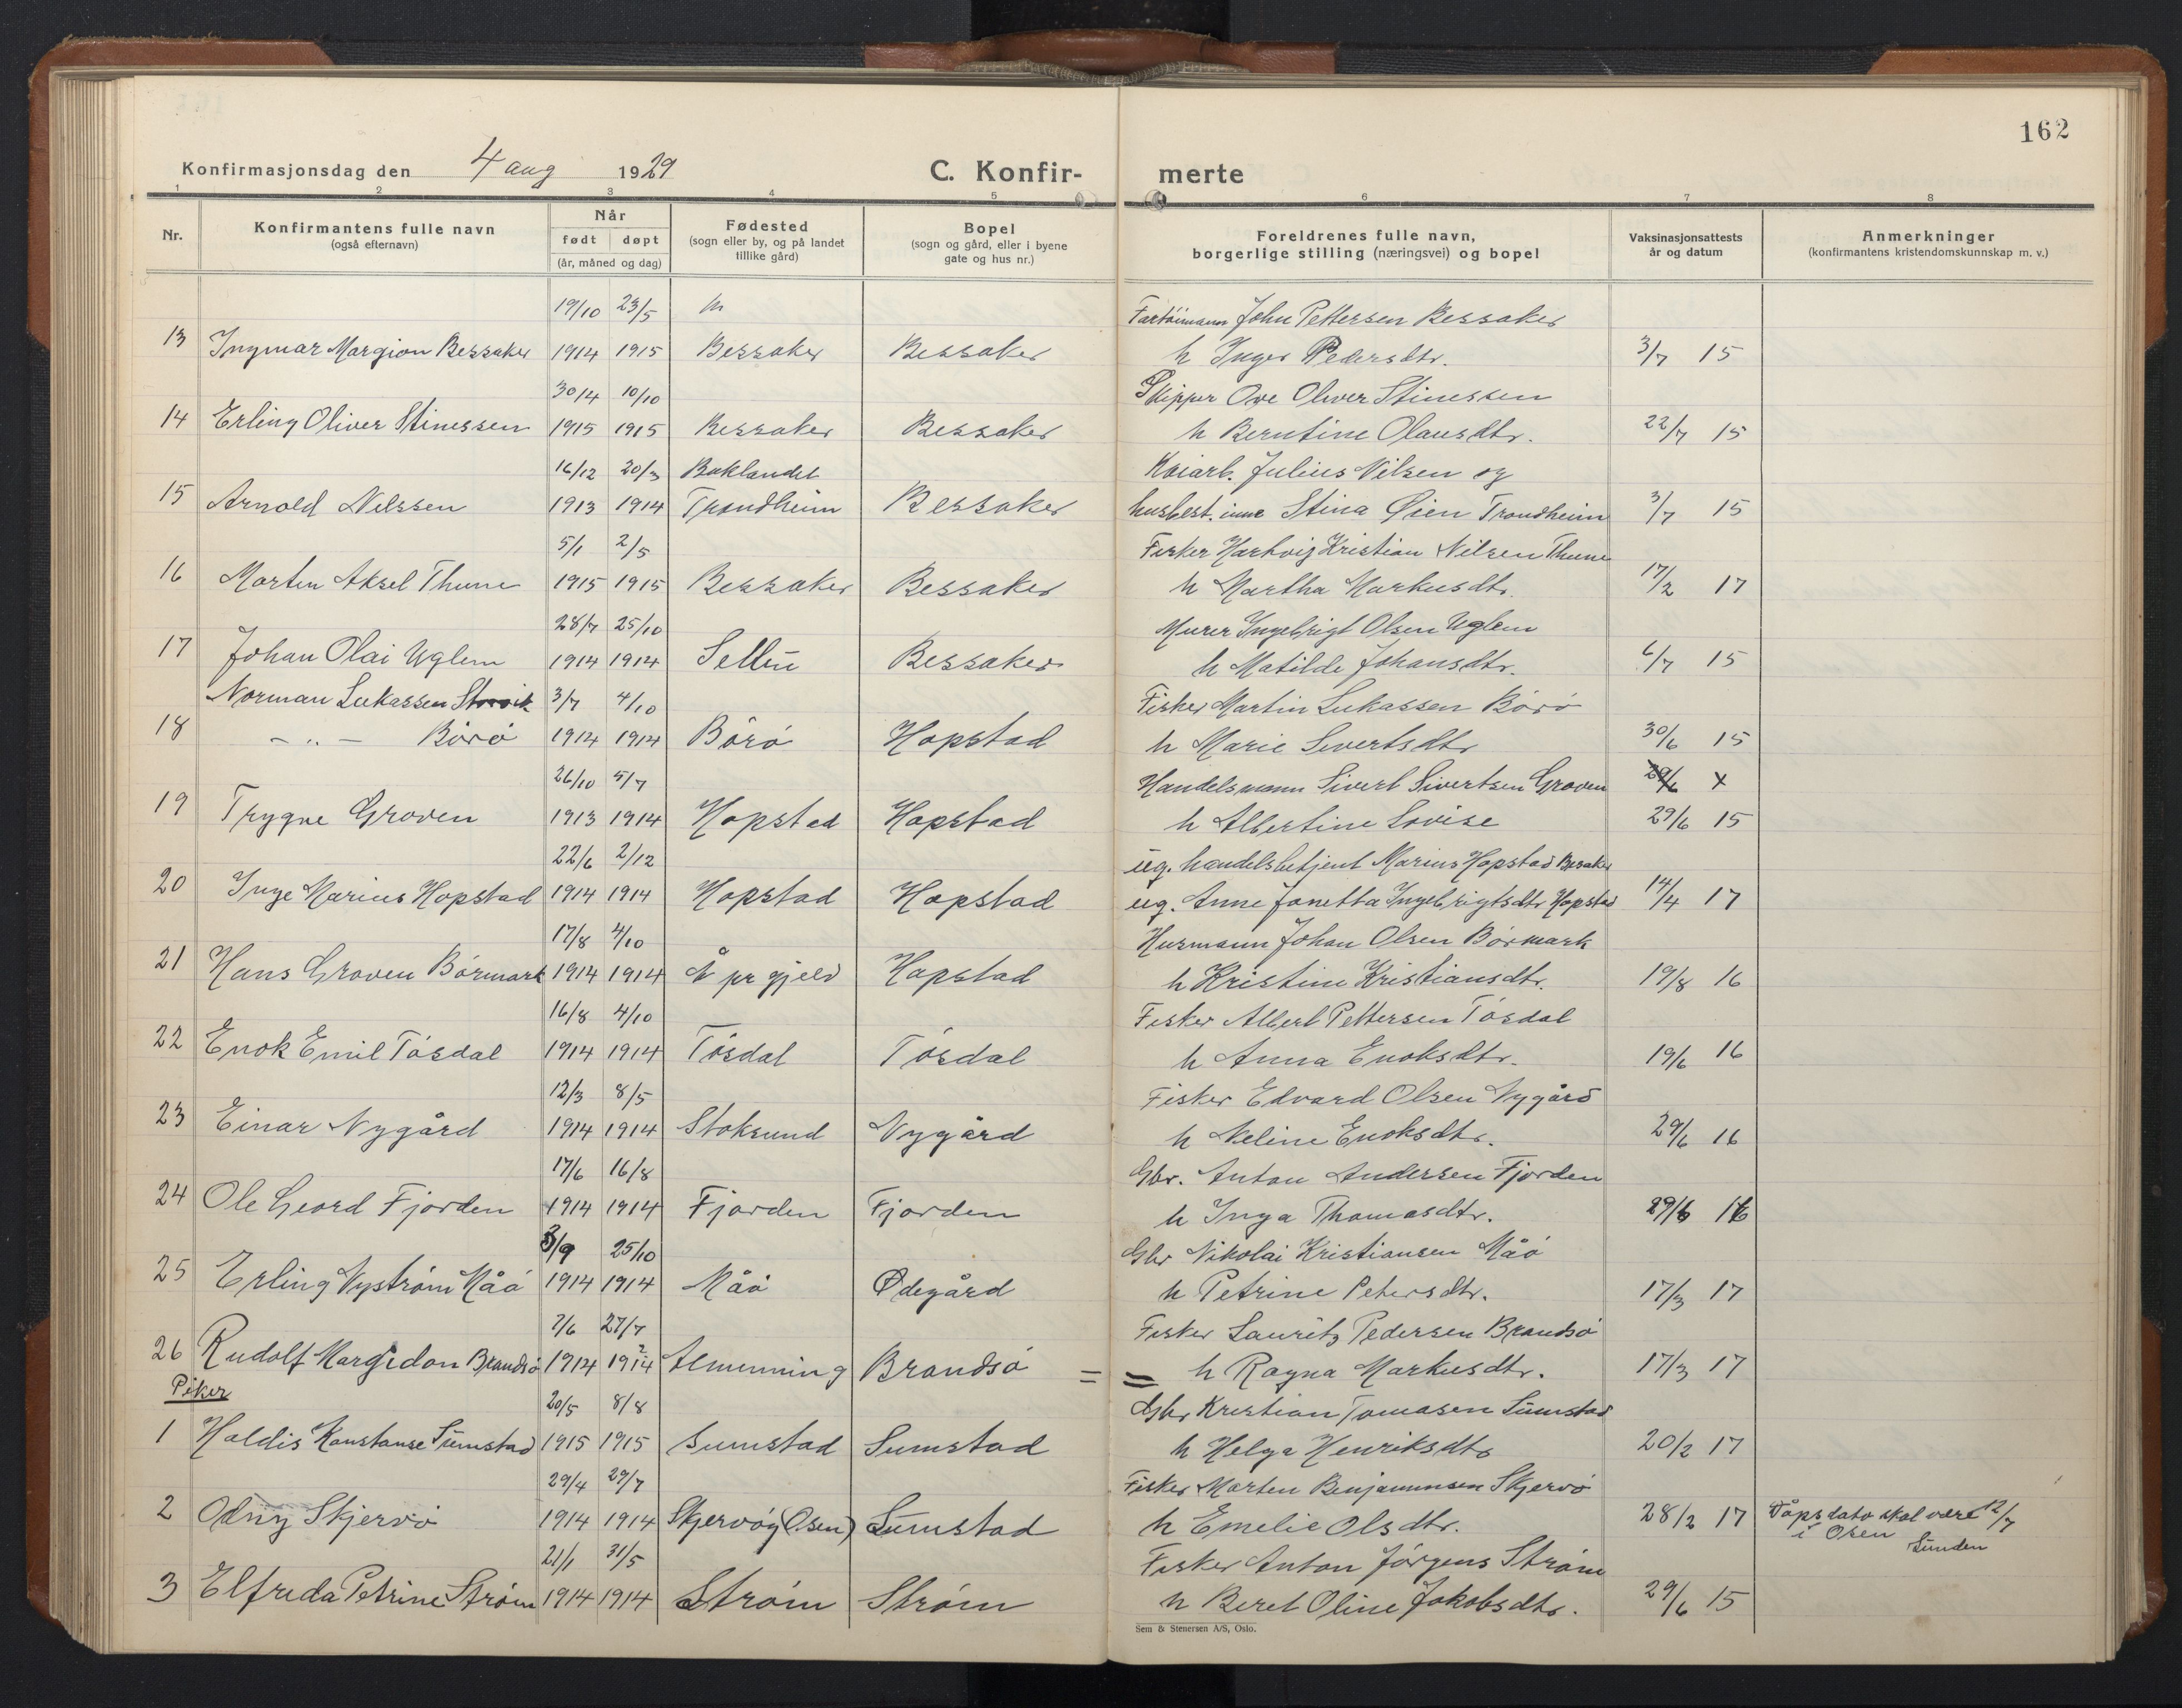 162
Konfirmasjonsdag den 4 aug 1929 C. Konfir- merte
1 2 3 4 5 6 7 8
Nr. Konfirmantens fulle navn (også efternavn) Når født døpt (år, måned og dag) Fødested (sogn eller by, og på landet tillike gård) Bopel (sogn og gård, eller i byene gate og hus nr.) Foreldrenes fulle navn, borgerlige stilling (næringsvei) og bopel Vaksinasjonsattests år og datum Anmerkninger (konfirmantens kristendomskunnskap m. v.)
19/10 23/5 John Pettersen Bessaker
13 Ingmar Margion Bessaker 1914 1915 Bessaker Bessaker h Inger Pedersdtr. 3/7 15
30/4 10/10 Skipper Ove Oliver Stinessen
14 Erling Oliver Stinessen 1915 1915 Bessaker Bessaker h Berntine Olausdtr. 22/7 15
16/12 20/3 Baklandet Kaiarb. Julius Nilsen og
15 Arnold Nilssen 1913 1914 Trondheim Bessaker husbest.inne Stina Øien Trondheim 3/7 15
5/1 2/5 Fisker Hartvig Kristian Nilsen Thune
16 Morten Aksel Thune 1915 1915 Bessaker Bessaker h Martha Markusdtr. 17/2 17
28/7 25/10 Murer Ingebrigt Olsen Uglem
17 Johan Olai Uglem 1914 1914 Selbu Bessaker h Matilde Johansdtr. 6/7 15
Norman Lukassen Storvik 3/7 4/10 Fisker Martin Lukassen Börö
18 - " - Börö 1914 1914 Börö Hopstad h Marie Sivertsdtr 30/6 15
26/10 5/7 Handelsmann Sivert Sivertsen Groven 29/6 x
19 Trygve Groven 1913 1914 Hopstad Hopstad h Albertine Lovise 29/6 15
22/6 2/12 ug. handelsbetjent Marius Hopstad Besaker
20 Inge Marius Hopstad 1914 1914 Hopstad Hopstad ug. Anne Janetta Ingebrigtsdtr Hopstad 14/4 17
17/8 4/10 Husmann Johan Olsen Börmark
21 Hans Groven Börmark 1914 1914 Å pr gjeld Hopstad h Kristine Kristiansdtr. 19/8 16
16/8 4/10 Fisker Albert Pettersen Tösdal
22 Enok Emil Tösdal 1914 1914 Tösdal Tösdal h Anna Enoksdtr. 19/6 16
12/3 8/5 Fisker Edvard Olsen Nygård
23 Einar Nygård 1914 1914 Stoksund Nygård h Neline Enoksdtr. 29/6 16
17/6 16/8 Gbr. Anton Andersen Fjorden
24 Ole Geord Fjorden 1914 1914 Fjorden Fjorden h Inga Thomasdtr. 29/6 16
3/9 25/10 Gbr Nikolai Kristiansen Måö
25 Erling Nyström Måö 1914 1914 Måö Ødegård h Petrine Petersdtr. 17/3 17
7/6 27/7 Fisker Lauritz Pedersen Brandsö
26 Rudolf Margidon Brandsö 1914 1914 Almenning Brandsö = = h Ragna Markusdtr. 17/3 17
Piker 20/5 8/8 Gbr Kristian Tomasen Sumstad
1 Haldis Konstanse Sumstad 1915 1915 Sumstad Sumstad h Helga Henriksdtr 20/2 17
29/4 29/7 Fisker Morten Benjaminsen Skjervö
2 Odny Skjervö 1914 1914 Skjervöy (Osen) Sumstad h Emelie Olsdtr. 28/2 17 Dåpsdato skal være 12/7 i Osen Sunden
21/1 31/5 Fisker Anton Jörgens Ström
3 Elfrida Petrine Ström 1914 1914 Ström Ström h Beret Oline Jakobsdtr. 29/6 15
Sem & Stenersen A/S, Oslo.